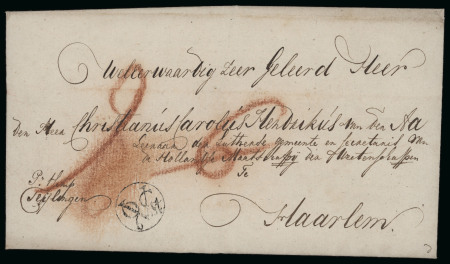 Wel eerwaardig Zeer Geleerd Heer
den Heer Christianus Carolus Henrikus van den Aa
Leeraar der Luthersche gemeente en Secretaris van
de Hollandsche Maatschappij der Weetenschappen
Te
Haarlem.